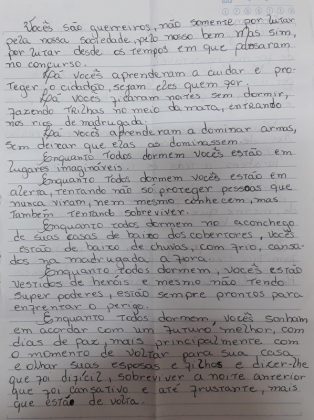 Vocês são guerreiros, não somente por lutar
pela nossa sociedade, pelo nosso bem mas sim,
por lutar desde os tempos em que passaram
no concurso.
Lá vocês aprenderam a cuidar e pro-
teger o cidadão, sejam eles quem for.
Lá vocês ficaram noites sem dormir,
fazendo trilhas no meio da mata, entrando
nos rios de madrugada.
Lá vocês aprenderam a dominar armas,
sem deixar que elas os dominassem.
Enquanto todos dormem vocês estão em
lugares imagináveis.
Enquanto todos dormem vocês estão em
alerta, tentando não só proteger pessoas que
nunca viram, nem mesmo conhecem, mas
também tentando sobreviver.
Enquanto todos dormem no aconchego
de suas casas de baixo dos cobertores, vocês
estão de baixo de chuvas, com frio, cansa-
dos na madrugada a fora.
Enquanto todos dormem, vocês estão
vestidos de heróis e mesmo não tendo
super poderes, estão sempre prontos para
enfrentar o perigo.
Enquanto todos dormem, vocês sonham
em acordar com um futuro melhor, com
dias de paz, mais principalmente com
o momento de voltar para sua casa,
e olhar suas esposas e filhos e dizer lhe
que foi difícil, sobreviver a noite anterior
que foi cansativo e até frustante, mais
que estão de volta.